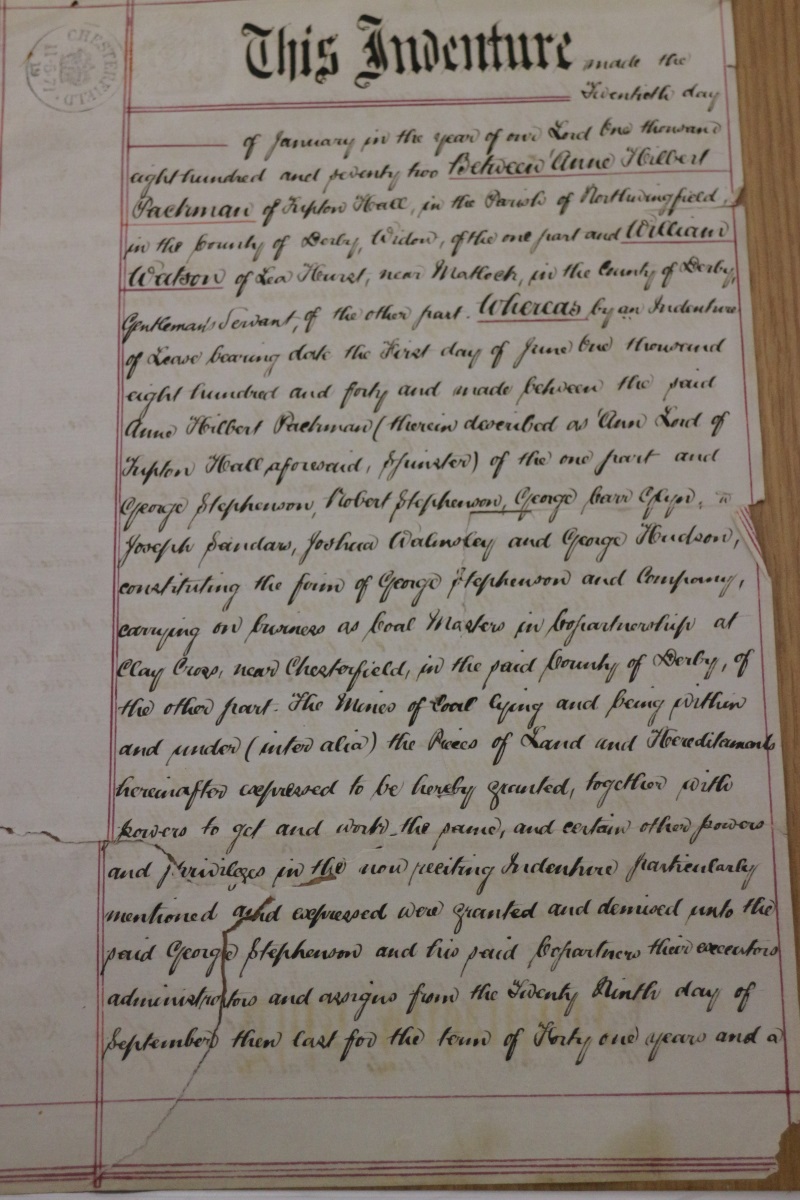 CHESTERFIELD
This Indenture made the
Twentieth day
of January in the year of our Lord One thousand
eight hundred and seventy two Between Anne Hilbert
Packman of Tupton Hall, in the Parish of Northwingfield,
in the County of Derby, Widow, of the one part and William
Watson of Lea Hurst, near Matlock, in the County of Derby,
Gentleman's Servant, of the other part. Whereas by an Indenture
of Lease bearing date the First day of June One thousand
eight hundred and forty and made between the said
Anne Hilbert Packman (therein described as Ann Lord of
Tupton Hall, aforesaid, Spinster) of the one part and
George Stephenson, Robert Stephenson, George Carr Glyn,
Joseph Sandars, Joshua Walmsley and George Hudson,
constituting the firm of George Stephenson and Company,
carrying on business as Coal Masters in Copartnership at
Clay Cross, near Chesterfield, in the said County of Derby, of
the other part. The Mines of Coal lying and being within
and under (inter alia) the Pieces of Land and Hereditaments
hereinafter expressed to be hereby granted, together with
powers to get and work the same, and certain other powers
and privileges in the now reciting Indenture particularly
mentioned and expressed were granted and demised unto the
said George Stephenson and his said Copartners their executors
administrators and assigns from the Twenty Ninth day of
September then last for the term of Forty one years and a